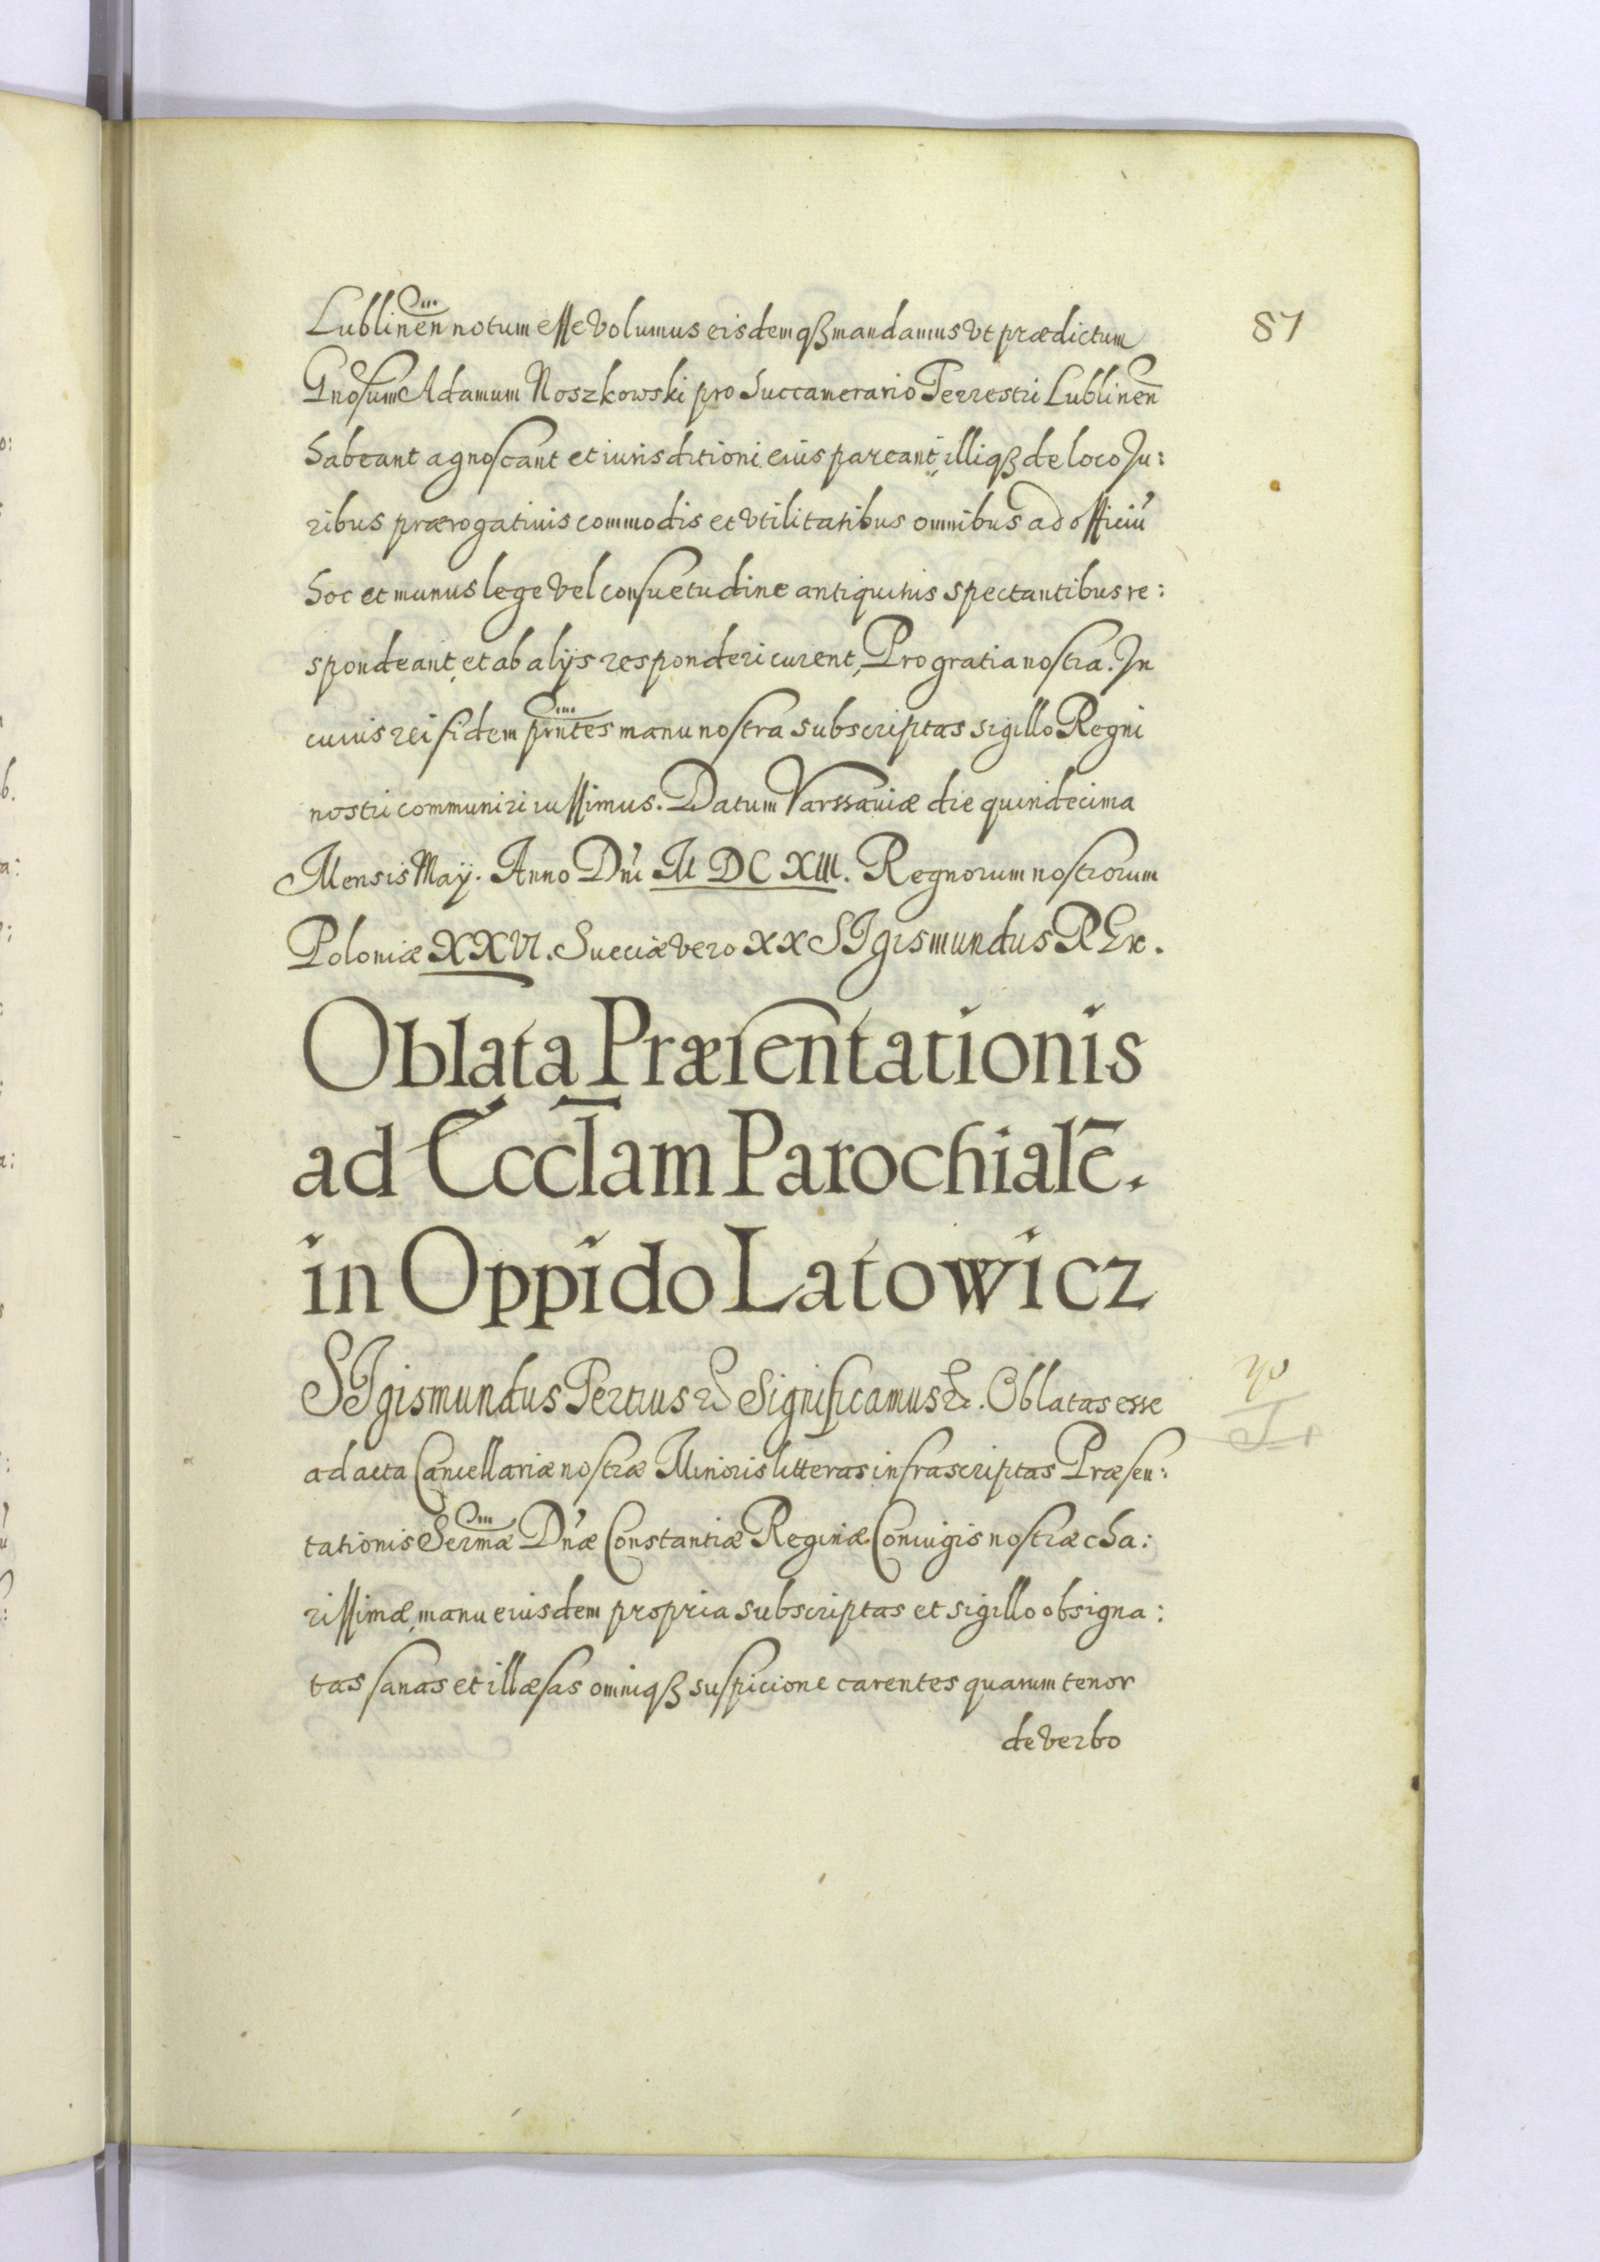 87
Lublinen̄ notum esse volumus eisdemqȝ mandamus vt prædictum
Gnosum Adamum Noszkowski pro Succamerario Terrestri Lublinen̄
habeant agnoscant et iurisditioni eius pareant, illiqȝ de loco Ju:
ribus prærogatiuis commodis et vtilitatibus omnibus ad officiū
hoc et munus lege vel consuetudine antiquitus spectantibus re:
spondeant, et ab alÿs responderi curent, Pro gratia nostra. In
cuius rei fidem pn̄tes manu nostra subscriptas sigillo Regni
nostri communiri iussimus. Datum Varssauiæ die quindecima
Mensis Maÿ. Anno Dni M DC XIII. Regnorum nostrorum
Poloniæ XXVI. Sueciæ vero XX SIgismundus REx.
Oblata Præsentationis
ad Eccl̄am Parochialē.
in Oppido Latowicz
SIgismundus Tertius &c Significamus &c. Oblatas esse
ad acta Cancellariæ nostræ Minoris litteras infrascriptas Præsen:
tationis Serm̄æ Dn̄æ Constantiæ Reginæ Coniugis nostræ cha:
rissimæ, manu eiusdem propria subscriptas et sigillo obsigna:
tas sanas et illæsas omniqȝ suspicione carentes quarum tenor
de verbo